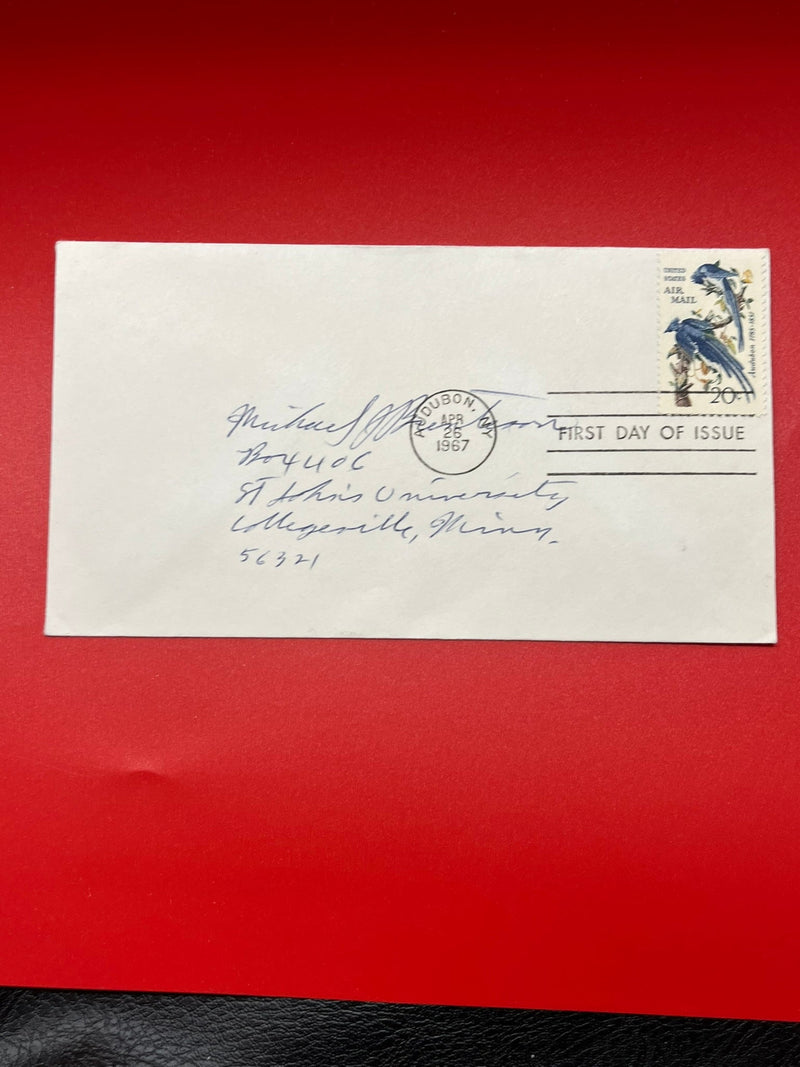 UNITED
STATES
AIR
MAIL
Audubon 1785-1851
20c
AUDUBON, NY
APR
26
1967
FIRST DAY OF ISSUE
Michael J
Box 406
St John's University
Collegeville, Minn.
56321